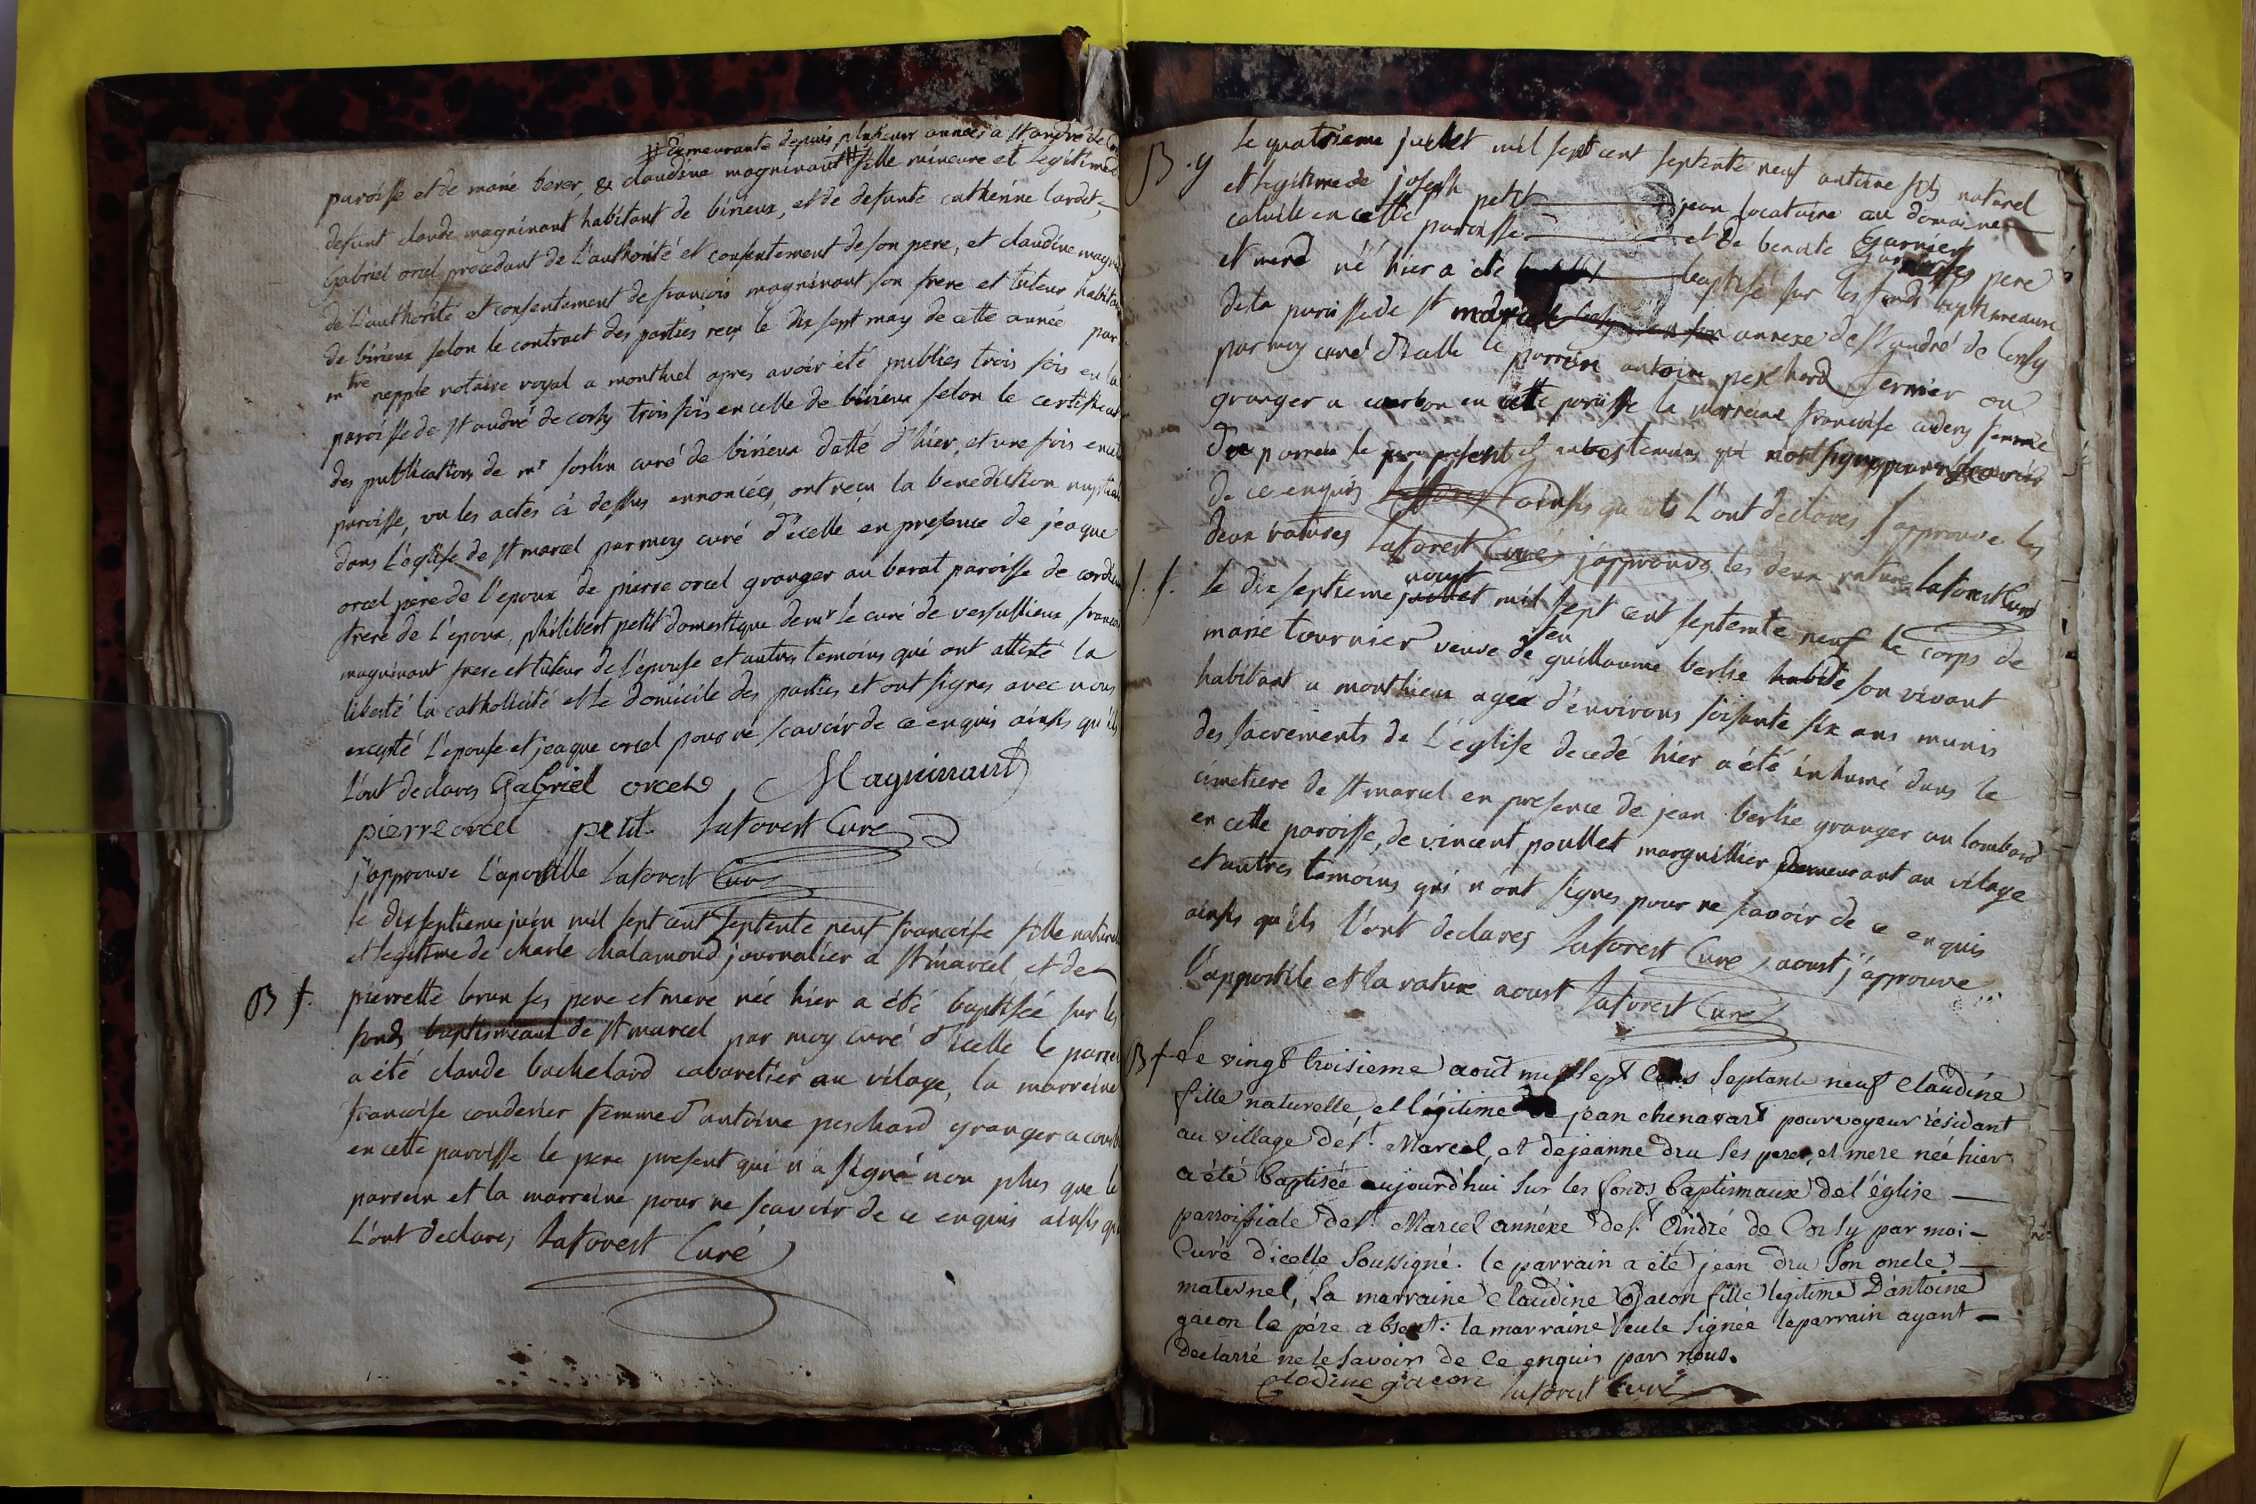 # demeurante depuis plusieurs années a st andré de
paroisse et de marie berer, & claudine magninant # fille mineure et legitime de
defunt claude magninant habitant de birieux, et de defunte catherine lardet,
gabriel orcel procedant de l'authorité et consentement de son pere, et claudine
de l'authorité et consentement de francois magninant son frere et tuteur
de birieux selon le contract des parties reçu le dix sept may de cette année par
mtre nepple notaire royal a montluel apres avoir été publiés trois fois en la
paroisse de st andré de corsy trois fois en celle de birieux selon le certificat
des publications de mr curé de birieux datté d'hier, et une fois en
paroisse, vu les actes ci dessus ennoncées, ont reçu la benediction nuptiale
dans l'eglise de st marcel par moy curé d'icelle en presence de jeaque
orcel pere de l'epoux de pierre orcel granger au barat paroisse de
frere de l'epoux, philibert petit domestique de mr le curé de versaillieux
magninant frere et tuteur de l'epouse et autres temoins qui ont attesté la
liberté la catholicité et le domicile des parties et ont signes avec nous
excepté l'epouse et jeaque orcel pour ne scavoir de ce enquis ainsi qu'ils
l'ont declares Gabriel orcel Magninant
pierre orcel petit Laforest Curé
j'approuve l'apostille Laforest Curé
le dix septieme juin mil sept cent septente neuf francoise fille naturelle
et legitime de charle chalamond journalier a st marcel et de
B f. pierrette brun ses pere et mere née hier a été baptisée sur les
fonds baptismeaux de st marcel par moy curé d'icelle le parrein
a été claude bachelard cabaretier au vilage, la marreine
francoise couderier femme d'antoine peschard granger a
en cette paroisse le pere present qui n'a signé non plus que le
parrein et la marreine pour ne scavoir de ce enquis ainsi
l'ont declares Laforest Curé
B. g le quatrieme juillet mil sept cent septente neuf antoine fils naturel
et legitime de joseph petit jean locataire au domaine
en cette paroisse et de benoite Garnier
et mere né hier a été baptisé sur les fonds baptismeaux
de la paroisse de st marcel annexe de st andré de Corsy
par moy curé d'icelle le parrein antoin peschard fermier ou
granger a en cette paroisse la marreine francoise femme
du parrein le pere present et autres temoins qui n'ont signé pour ne
de ce enquis ainsis qu'ils l'ont declares j'approuve les
deux ratures Laforest Curé j'approuve les deux ratures Laforest Curé
f. f. le dix septieme juillet aoust mil sept cent septente neuf le corps de
marie tournier veuve de guillaume berlie habite en son vivant
habitant a monthieux agee d'environs soisante six ans munis
des sacrements de l'église decedé hier a été inhumé dans le
cimetiere de st marcel en presence de jean berlie granger au lombard
en cette paroisse, de vincent poullet marguillier demeurant au vilage
et autres temoins qui n'ont signes pour ne scavoir de ce enquis
ainsis qu'ils l'ont declares Laforest Curé aoust j'approuve
l'appostile et la rature aoust Laforest Curé
B f Le vingt troisieme aout mil sept cens septante neuf Claudine
fille naturelle et légitime de jean chenavart pourvoyeur résidant
au village de st. Marcel, et de jeanne dru ses pere, et mere née hier
a été baptisée aujourd'hui sur les fonds baptismaux de l'église
parroissiale de st. Marcel annéxe de st. André de Corsy par moi
Curé d'icelle soussigné. le parrain a été jean dru son oncle
maternel, la marraine Claudine Gacon fille légitime D'antoine
gacon le pére absent: la marraine seule signée le parrain ayant
declarré ne le savoir de ce enquis par nous.
Clodine gacon Laforest curé